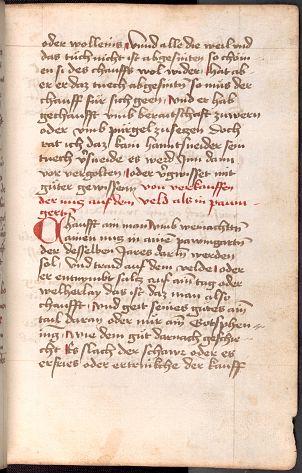 oder wolleins vnnd alle die weil vnd
das tuch nicht ist abgesnitten so schom
en si des chauffs wol wider hat ab
er er daz tuech abgesnitn so mus der
chauff für sich geen vnd er hab
gechaufft vmb beraitschafft zuwern
oder vmb purgel zusegen Doch
rat ich daz kain hanntsneider sein
tuech v̈sneide es werd Im dann
vor vergolten oder vergwisset mit
güter gewissenn von verkauffen
der nüg auf dem veld als in paum
gertn
Chaufft ain man vmb weinachten
ainen nüg in aine pawmgartn
der desselben Jares darin werden
sol vnd trayd auf dem velde oder
er enpimbt sülz auf ain tag oder
welherlay das ist daz man also
chaufft vnd geit seines gütes ain
tail daran oder nür ain Gotsphen
ing wie dem güt darnach geschie
cht es slach der schawr oder es
erfries oder ertrinkche der kauff